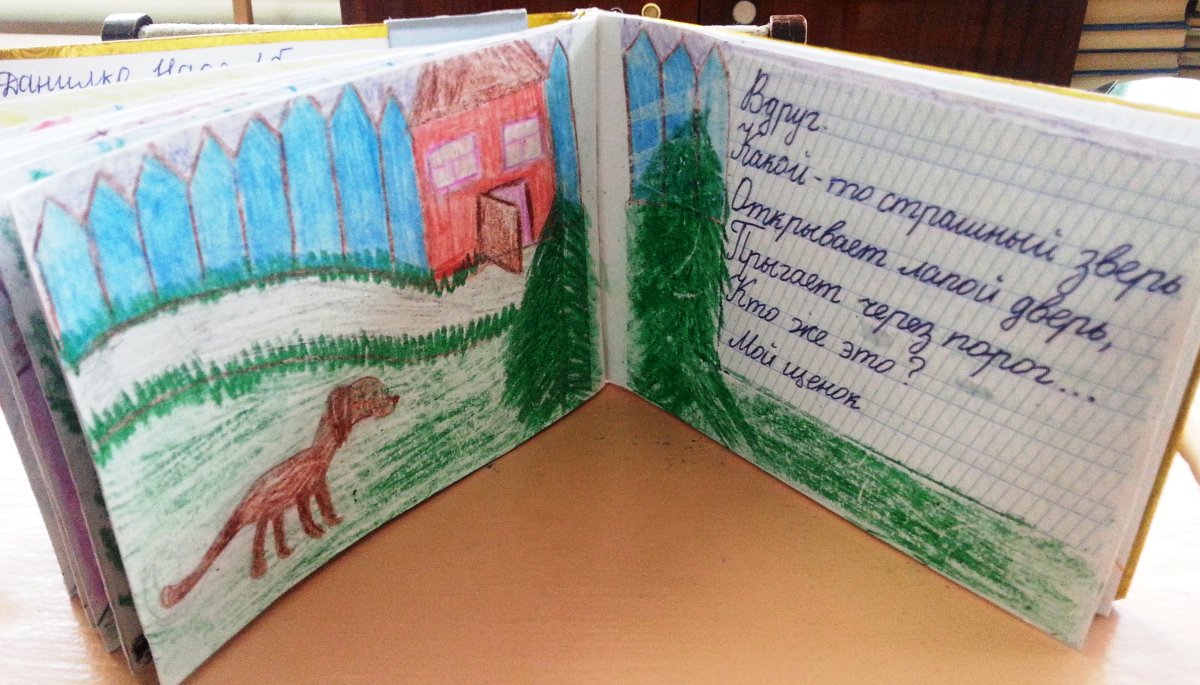 Данилко
Вдруг.
Какой-то страшный зверь
Открывает лапой дверь,
Прыгает через порог...
Кто же это?
Мой щенок